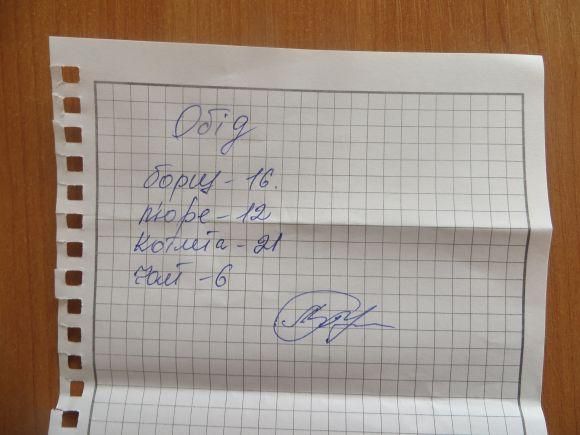 Обід
борщ - 16.
пюре - 12
котлета - 21
- 6